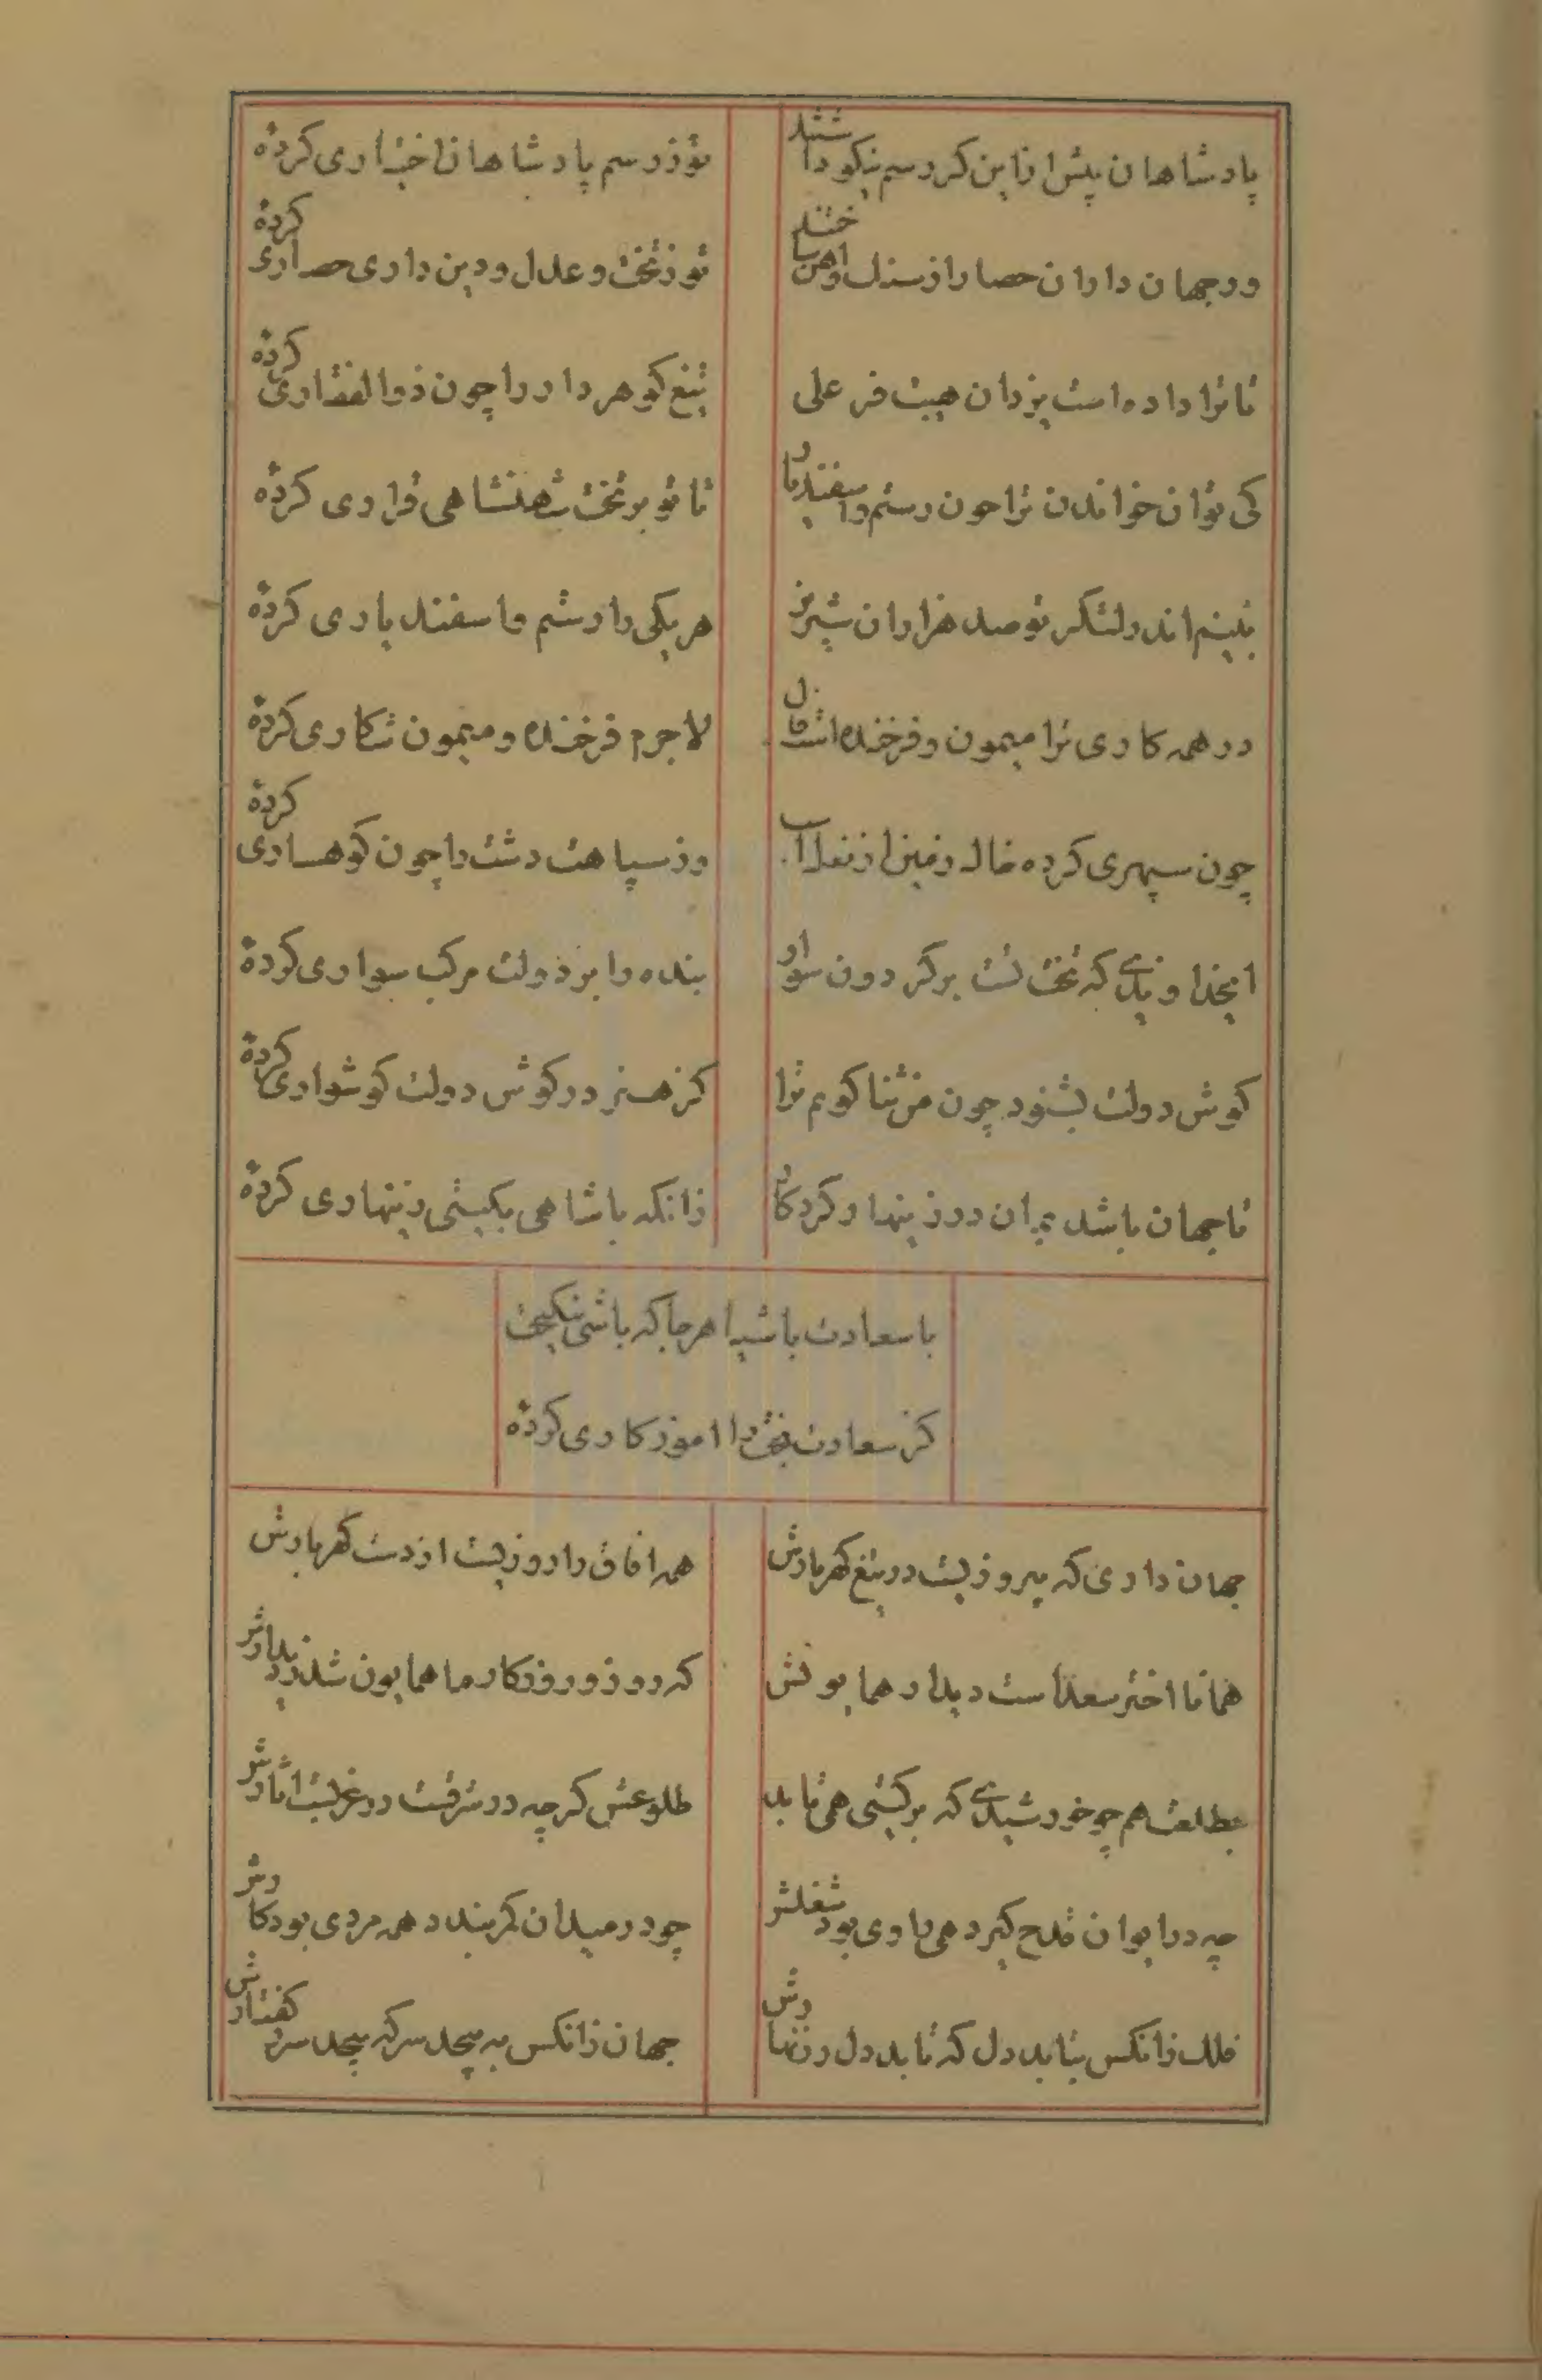 پادشاهان پیش ازاین کر رسم نیکو داشتند
تو ز رسم پادشاهان اختیاری کرده
ور جهان داران حصار از سنک و اهن ساختند
تو ز تخت و عدل و دین داری حصاری کرده
تا ترا داده است یزدان هیبت فر علی
تیغ کوهر دار را چون ذوالفقاری کرده
کی توان خواندن ترا چون رستم و اسفندیار
تا تو بر تخت شهنشاهی قراری کرده
بینم اندر لشکر تو صد هزاران شیر نر
هر یکی را رستم و اسفندیاری کرده
در همه کاری ترا میمون و فرخنده است فال
لاجرم فرخنده و میمون شکاری کرده
چون سپهری کرده خاک زمین از نعل اسب
وز سپاهت دشت را چون کوهساری کرده
ایخداوندی که تخت تست بر کردون سوار
بنده را بر دولت مرکب سواری کرده
کوش دولت بشنود چون من ثنا کویم ترا
کز هنر در کوش دولت کوشواری کرده
تا جهان باشد بمان در زینهار کردکار
زانکه با شاهی بکیتی زینهاری کرده
با سعادت باش یا هر جا که باشی نیکبخت
کز سعادت بخت را اموزکاری کرده
جهان داری که پیروزیست در تیغ کهربارش
همه افاق را روزیست از دست کهربارش
همانا اختر سعد است دیدار همایونش
که روز و روزکار ما همایون شد ز دیدارش
بطلعت هم چو خورشیدی که بر کیتی همی تابد
طلوعش کرچه در شرقست در غربست اثارش
چه در ایوان قدح کیرد همی رادی بود شغلش
چو در میدان کمر بندد همه مردی بود کارش
فلک زانکس بتابد دل که تابد دل ز زنهارش
جهان زانکس به پیچد سر که پیچد سر ز کفتارش